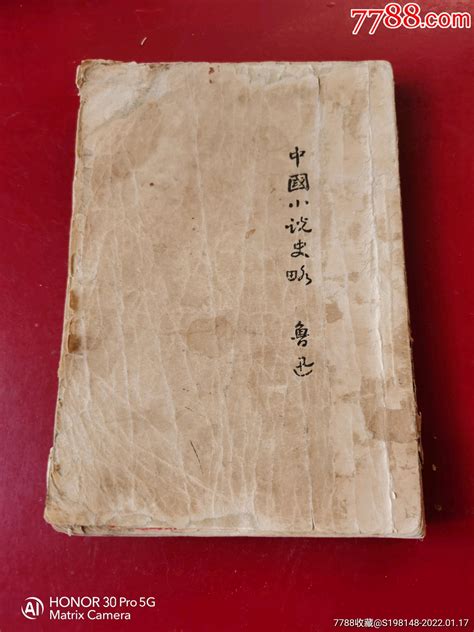 7788.com
中國小说史略 魯迅
AI HONOR 30 Pro 5G
Matrix Camera
7788收藏@S198148-2022.01.17